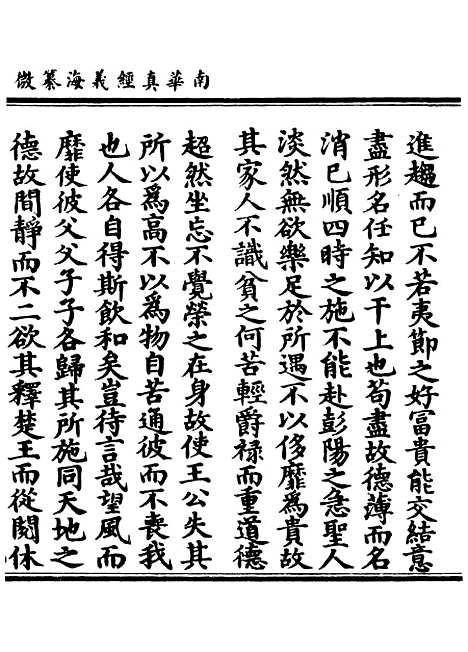 南華真經義海纂微
進趨而已不若夷節之好冨貴能交結意
盡形名任知以干上也苟盡故德薄而名
消已順四時之施不能赴彭陽之急聖人
淡然無欲樂足於所遇不以侈靡爲貴故
其家人不識貧之何苦輕爵禄而重道德
超然坐忘不覺榮之在身故使王公失其
所以爲高不以爲物自苦通彼而不喪我
也人各自得斯飲和矣豈待言哉望風而
靡使彼父父子子各歸其所施同天地之
德故間靜而不二欲其釋楚王而從閱休